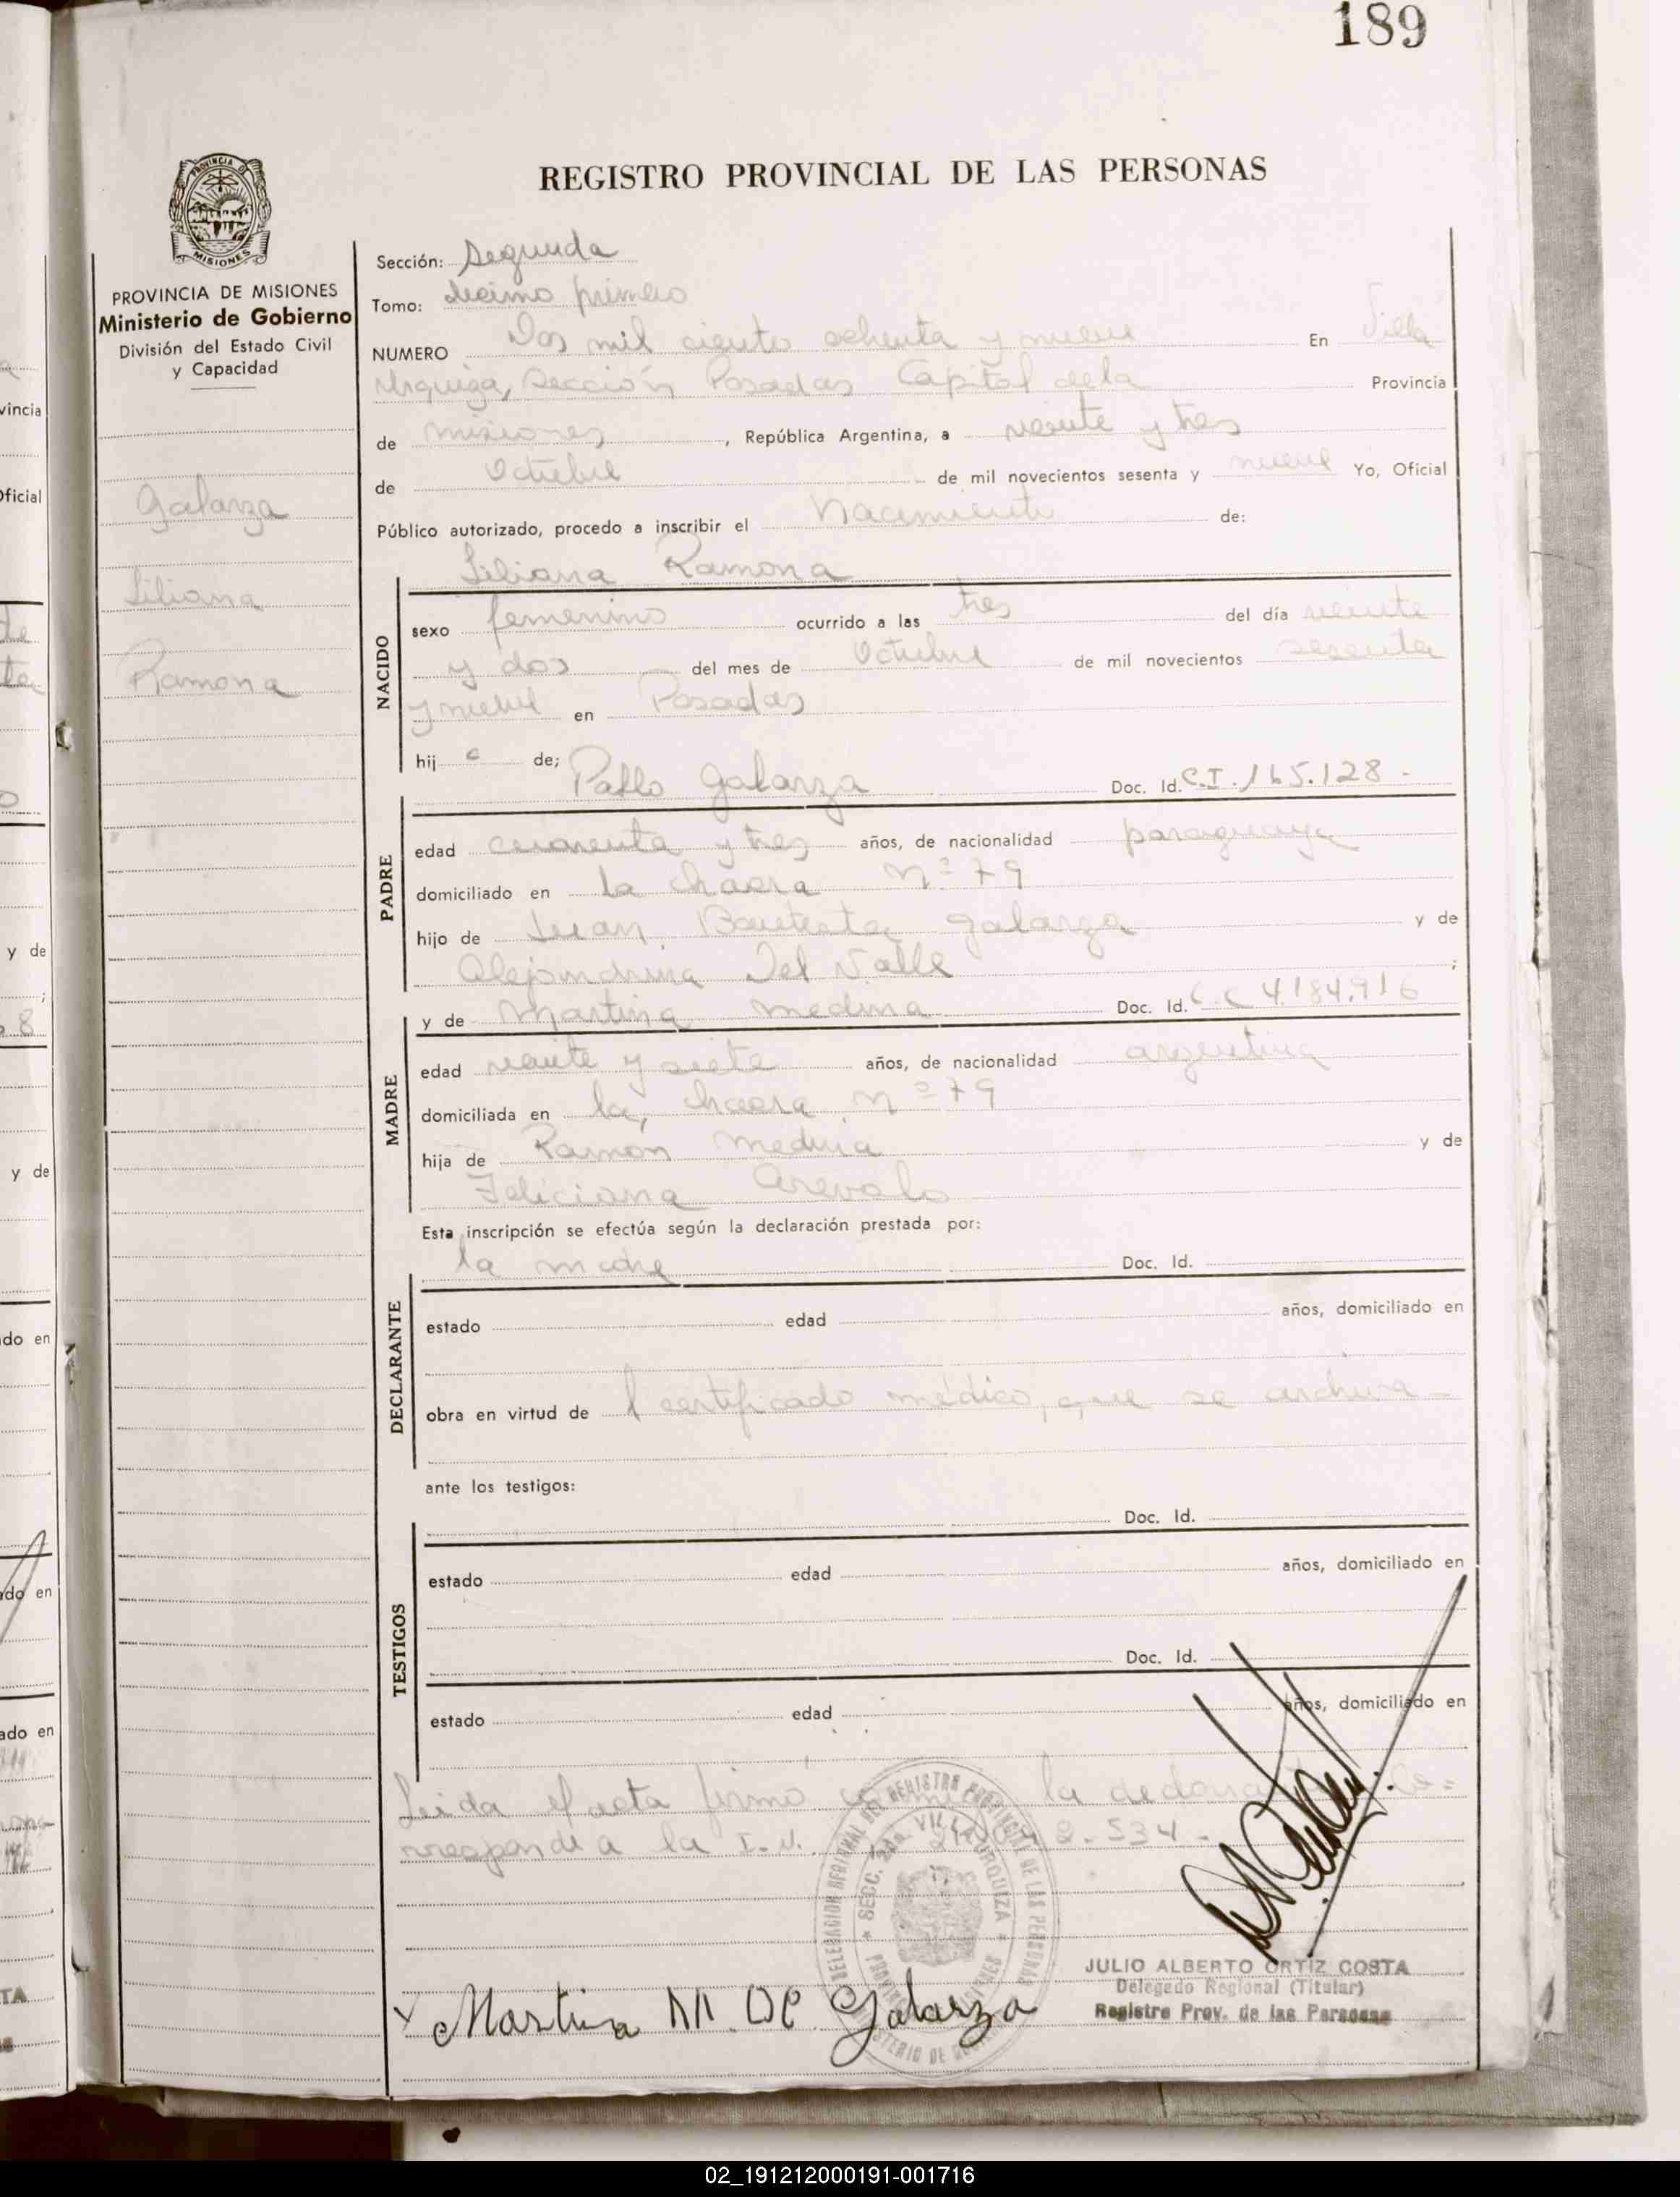 189
PROVINCIA
MISIONES
REGISTRO PROVINCIAL DE LAS PERSONAS
PROVINCIA DE MISIONES
Ministerio de Gobierno
División del Estado Civil
y Capacidad
Galarza
Liliana
Ramona
Sección: Segunda
Tomo: decimo primero
NUMERO Dos mil ciento ochenta y nueve En Villa
Urquiza, Sección Posadas Capital de la Provincia
de Misiones, República Argentina, a veinte y tres
de Octubre de mil novecientos sesenta y nueve Yo, Oficial
Público autorizado, procedo a inscribir el Nacimiento de:
Liliana Ramona
NACIDO
sexo femenino ocurrido a las tres del día veinte
y dos del mes de Octubre de mil novecientos sesenta
y nueve en Posadas
hij a de;
Pablo Galarza Doc. Id. C.I. 165.128.-
PADRE
edad cuarenta y tres años, de nacionalidad paraguaya
domiciliado en la chacra nº 79
hijo de Juan Bautista Galarza y de
Alejandrina Del Valle ;
y de Martina Medina Doc. Id. C.C 4.184.916
MADRE
edad veinte y siete años, de nacionalidad argentina
domiciliada en la chacra nº 79
hija de Ramón Medina y de
Feliciana Arevalo
Esta inscripción se efectúa según la declaración prestada por:
la madre Doc. Id.
DECLARANTE
estado edad años, domiciliado en
obra en virtud de l certificado médico, que se archiva -
ante los testigos:
Doc. Id.
TESTIGOS
estado edad años, domiciliado en
Doc. Id.
estado edad años, domiciliado en
Leida el acta firmó la
rresponde a la 2.534.-
DELEGACION REGIONAL DEL REGISTRO PROVINCIAL DE LAS PERSONAS
SECC. 2da. VILLA URQUIZA
JULIO ALBERTO ORTIZ COSTA
Delegado Regional (Titular)
Registro Prov. de las Personas
Martina M. De Galarza
02_191212000191-001716